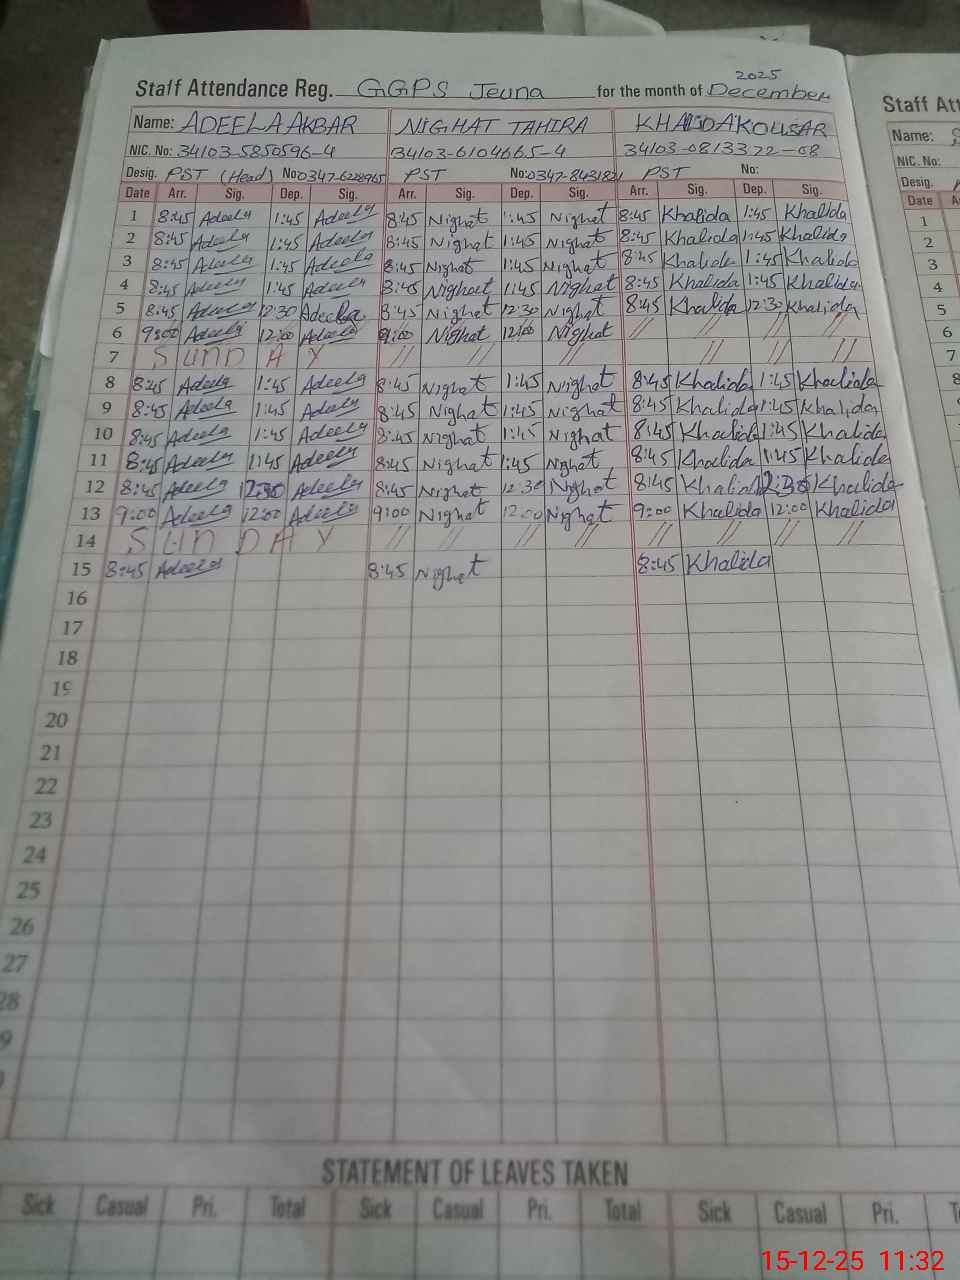 2025
Staff Attendance Reg. GGPS Jeuna for the month of December
Name: ADEELA AKBAR NIGHAT TAHIRA KHALIDA KOUSAR
NIC. No: 34103-5850596-4 34103-6104665-4 34103-0813322-08
Desig. PST (Head) No: 0347-6228965 PST No: 0347-8431821 PST No:
Date Arr. Sig. Dep. Sig. Arr. Sig. Dep. Sig. Arr. Sig. Dep. Sig.
1 8:45 Adeela 1:45 Adeela 8:45 Nighat 1:45 Nighat 8:45 Khalida 1:45 Khalida
2 8:45 Adeela 1:45 Adeela 8:45 Nighat 1:45 Nighat 8:45 Khalida 1:45 Khalida
3 8:45 Adeela 1:45 Adeela 8:45 Nighat 1:45 Nighat 8:45 Khalida 1:45 Khalida
4 8:45 Adeela 1:45 Adeela 8:45 Nighat 1:45 Nighat 8:45 Khalida 1:45 Khalida
5 8:45 Adeela 12:30 Adeela 8:45 Nighat 12:30 Nighat 8:45 Khalida 12:30 Khalida
6 9:00 Adeela 12:00 Adeela 9:00 Nighat 12:00 Nighat // // // //
7 SUNDAY // // // // // //
8 8:45 Adeela 1:45 Adeela 8:45 Nighat 1:45 Nighat 8:45 Khalida 1:45 Khalida
9 8:45 Adeela 1:45 Adeela 8:45 Nighat 1:45 Nighat 8:45 Khalida 1:45 Khalida
10 8:45 Adeela 1:45 Adeela 8:45 Nighat 1:45 Nighat 8:45 Khalida 1:45 Khalida
11 8:45 Adeela 1:45 Adeela 8:45 Nighat 1:45 Nghat 8:45 Khalida 1:45 Khalida
12 8:45 Adeela 12:30 Adeela 8:45 Nighat 12:30 Nighat 8:45 Khalida 12:30 Khalida
13 9:00 Adeela 12:00 Adeela 9:00 Nighat 12:00 Nighat 9:00 Khalida 12:00 Khalida
14 SUNDAY // // // // // // // //
15 8:45 Adeela 8:45 Nighat 8:45 Khalida
16
17
18
19
20
21
22
23
24
25
26
27
28
9
STATEMENT OF LEAVES TAKEN
Sick Casual Pri. Total Sick Casual Pri. Total Sick Casual Pri.
Staff Att
Name:
NIC. No:
Desig.
Date
1
2
3
4
5
6
7
15-12-25 11:32